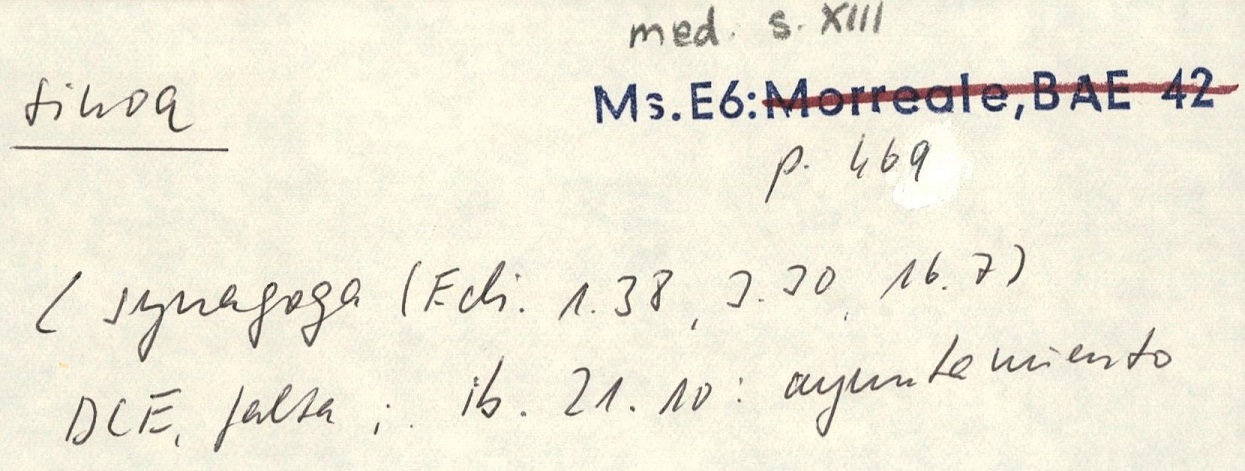 med. s. XIII
sinoa
Ms.E6: Morreale, BAE 42
p. 469
< synagoga (Ecli. 1.38, 3.30, 16.7)
DCE, falta ; ib. 21.10 : ayuntamiento